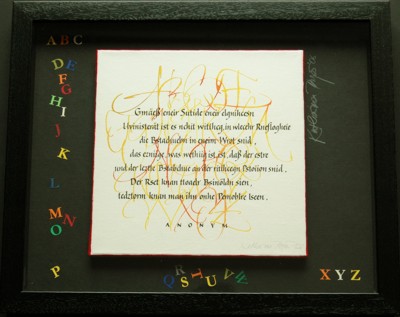 A B C
D E
F
G
H I
J
K
L
M N
O
P
Q R S T U V W
X Y Z
Gmäeß eneir Sutide eneir elgnihcesn
Uvinisterät ist es nchit witthcg, in wlecehr Rneflogheie
die Bstachuebn in eneim Wrot snid,
das ezniige, was wethiig ist, ist, daß der estre
und der leztte Bstabchue an der ritihcegn Pstoiion snid.
Der Rset knan ttoaelr Bsinöldn sien,
tedztorm knan man ihn onhe Pemoblre lseen.
A N O N Y M